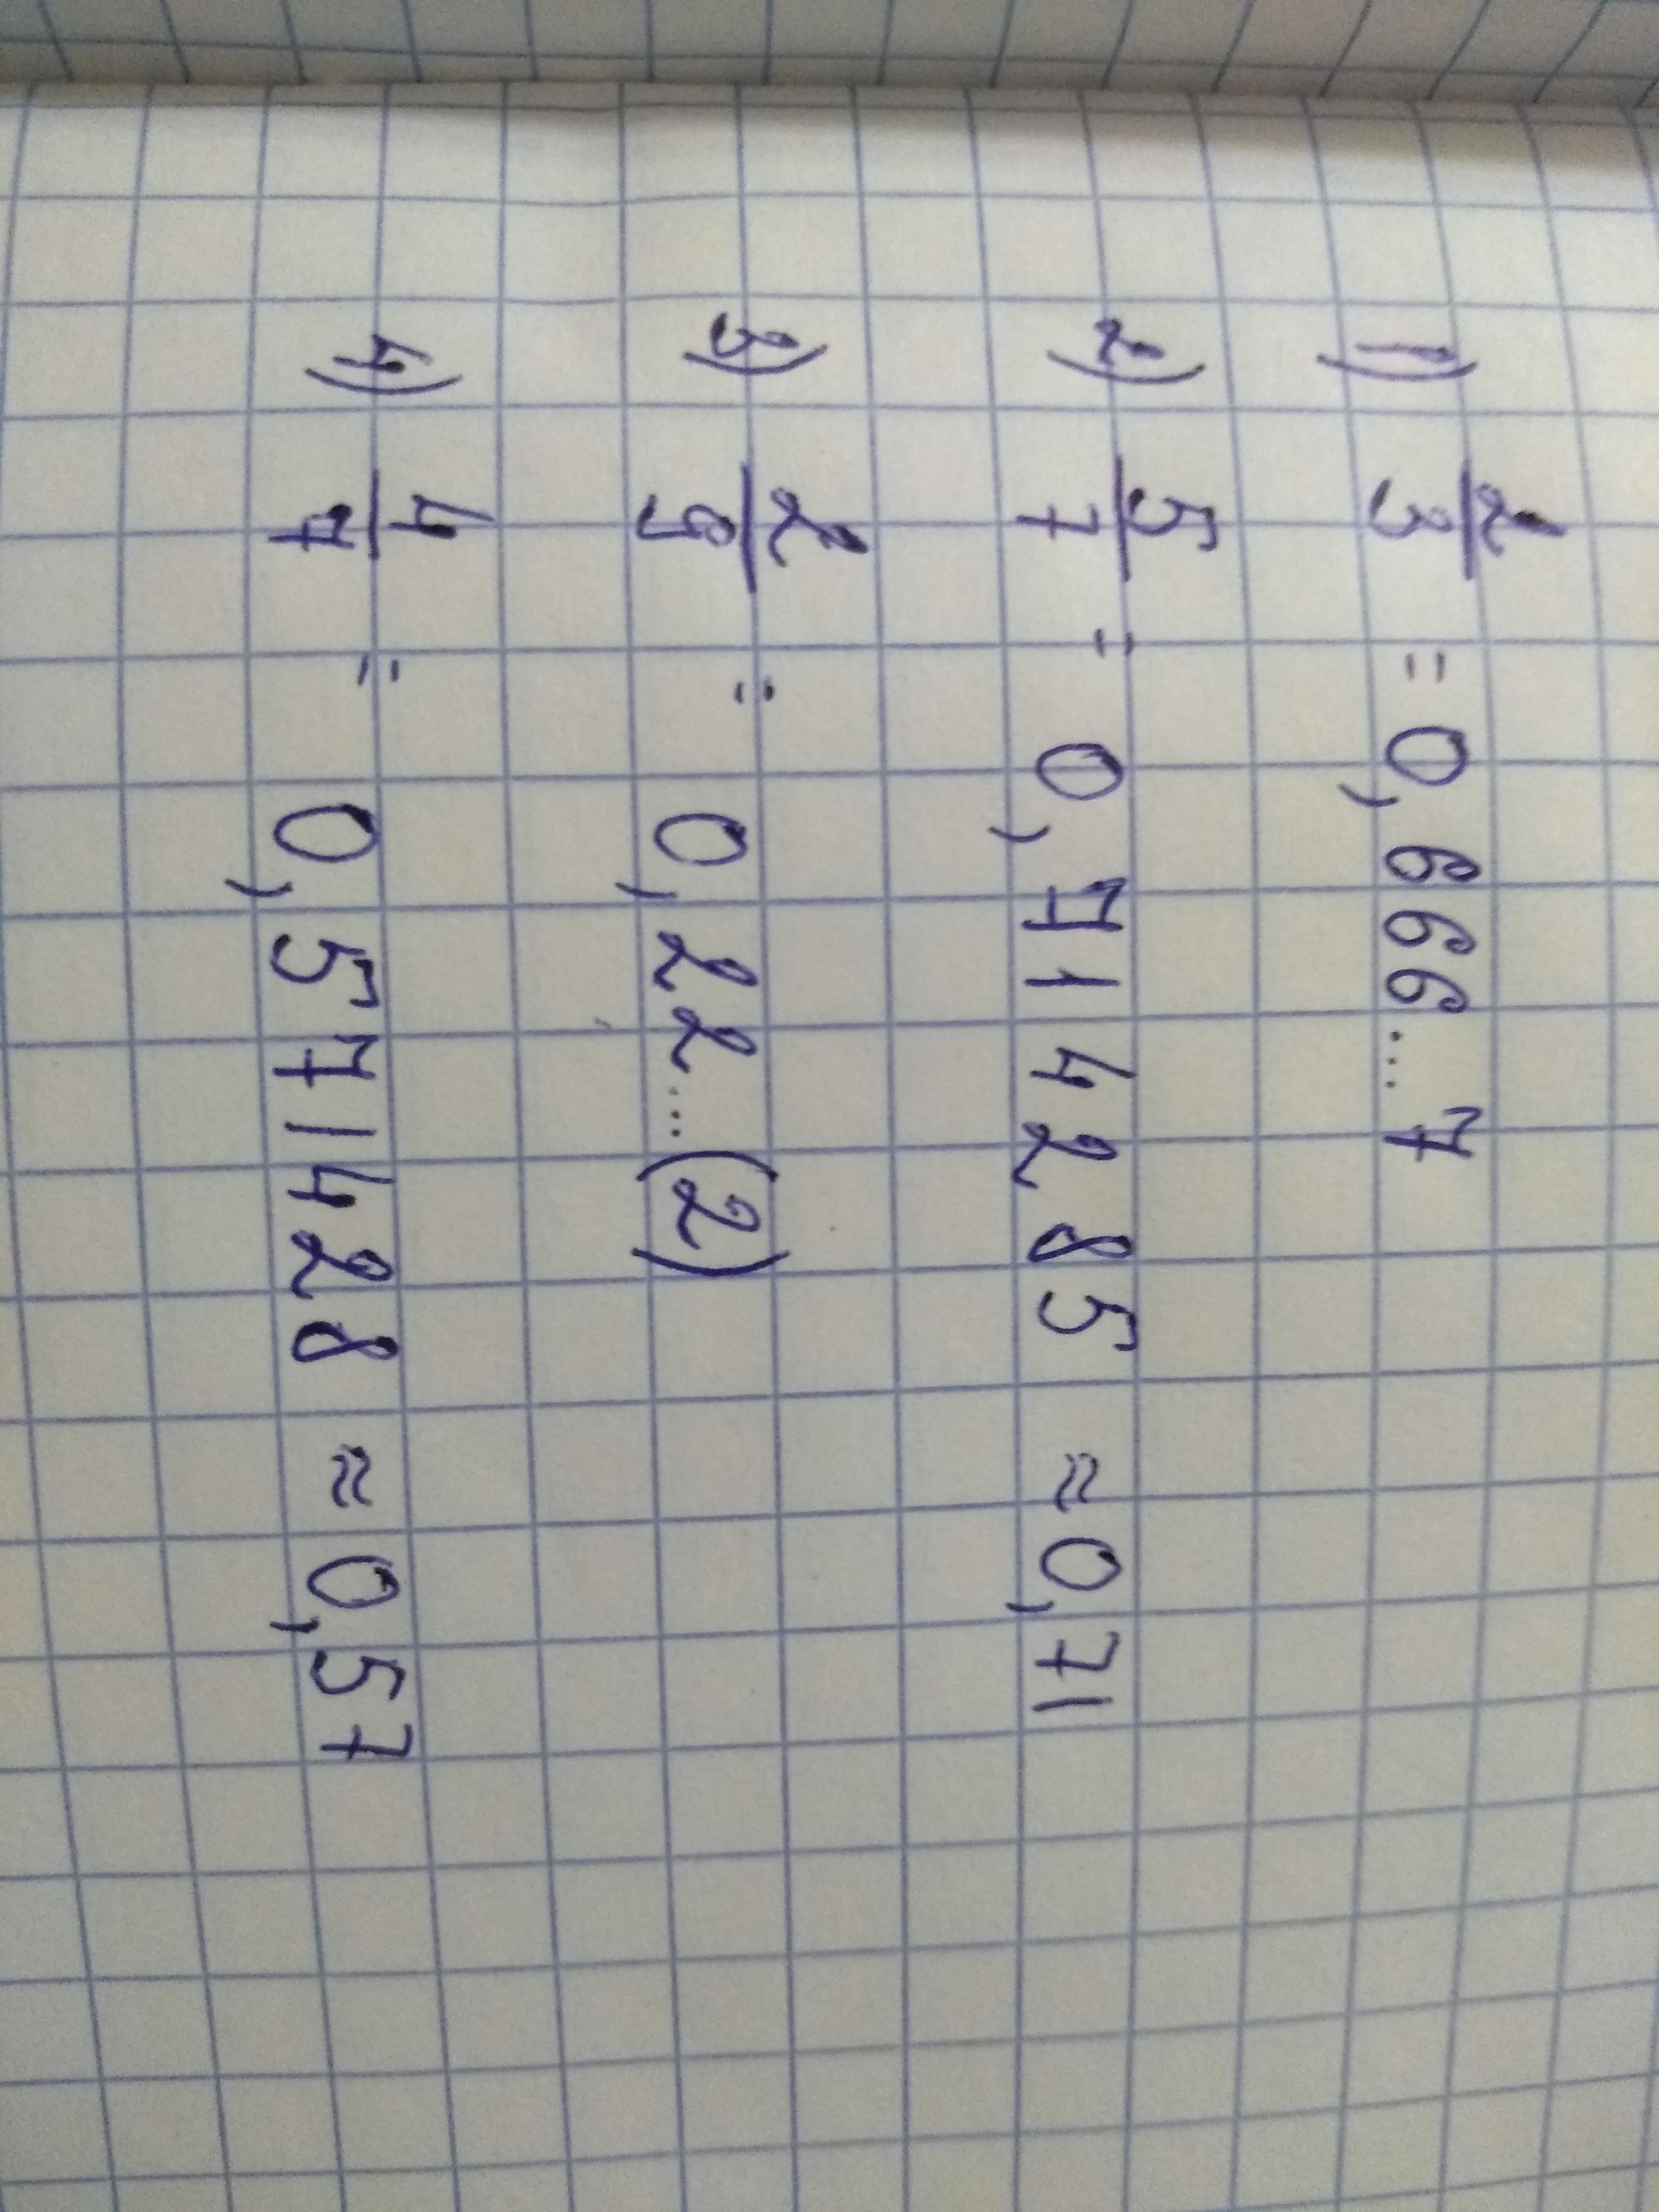 1) 2/3 = 0,666...7
2) 5/7 = 0,714285 ≈ 0,71
3) 2/9 = 0,22...(2)
4) 4/7 = 0,571428 ≈ 0,57